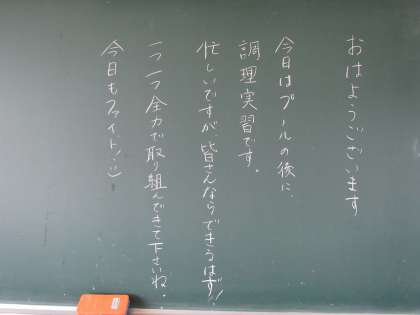 おはようございます
今日はプールの後に、
調理実習です。
忙しいですが、皆さんならできるはず!
一つ一つ全力で取り組んできて下さいね。
今日もファイト!:)